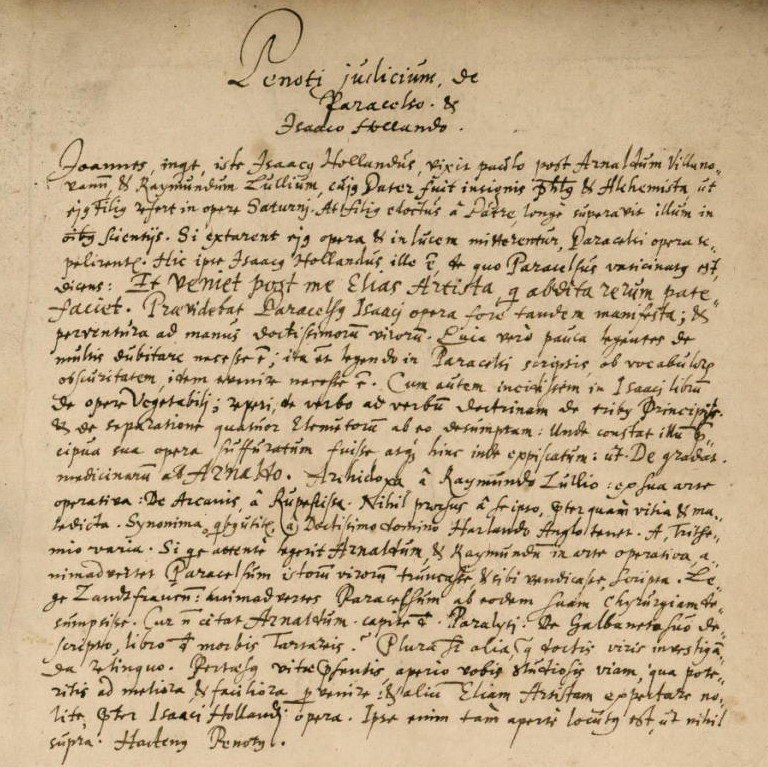 Penoti judicium, de
Paracelso. &
Isaaco Hollando.
Joannes, inqt, iste Isaacq Hollandus, vixit paulo post Arnaldum Villano-
vanum, & Raymundum Lullium, cujq Pater fuit insignis & Alchemista, ut
ejq Filiq refert in opere Saturnj. At filiq edoctus â Patre, longe superavit illum in
scientijs. Si extarent ejq opera & in lucem mitterentur, Paracelsi opera se-
pelirentr. Hic ipse Isaacq Hollandus ille ē, de quo Paracelsus vaticinatq est,
dicens: Et veniet post me Elias Artista, q abdita rerum pate-
faciet. Prævidebat Paracelsq Isaacj opera fore tandem manifesta; &
perventura ad manus doctissimorum virorum. Luca vero pauca legentes de
multis dubitare necesse ē; ita legendo in Paracelsi scriptis, ob vocabulorū
obscuritatem, idem evenire necesse ē. Cum autem incidissem in Isaacj librum
de opere Vegetabilj; reperi, de verbo ad verbū doctrinam de tribq Principijs
& de separatione quatuor Elemtorum ab eo desumptam: Unde constat illum p̄-
cipua sua opera suffuratum fuisse atq hinc inde expiscatum: ut De gradat.
medicinarum ab Arnaldo. Archidoxa â Raymundo Lullio: ex sua arte
operativa: De Arcanis, â Rupescissa. Nihil prorsus â seipso, p̄terquam vitia & ma-
ledicta. Synonima, (â) Doctissimo domino Harlando Anglo tenet. A, Trithe-
mio varia. Si qs attente legerit Arnaldum & Raymundū in arte operativa, a-
nimadvertet Paracelsum istorū virorū truncasse, & sibi vendicasse scripta. Le-
ge Lanckfrancū: animadvertes Paracelsum ab eodem suam Chyrurgiam de-
sumpsisse. Cur n̄ citat Arnaldum. capite d̄. Paralysi. De Galbaneto suo de-
scripto, libro d̄ morbis Tartareis. Plura st alia, q doctis viris investigā-
da relinquo. Pertæsq vitæ p̄sentis, aperio vobis studiosis viam, qua pote-
ritis ad meliora & faciliora pervenire: & aliū Eliam Artistam expectare no-
lite, p̄ter Isaacj Hollandj opera. Ipse enim tam aperte locutq est, ut nihil
supra. Hactenq Penotq.